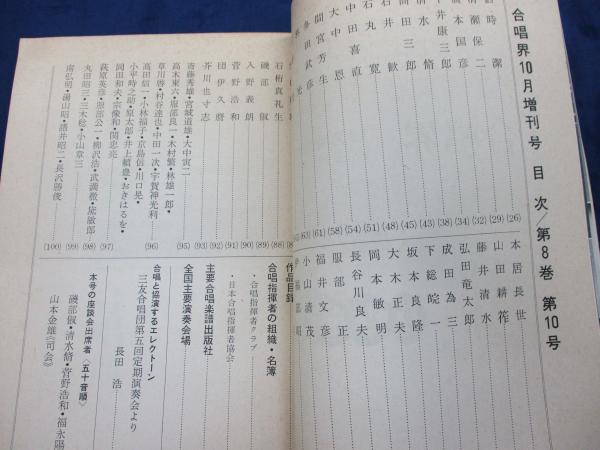 合唱界10月増刊号 目次/第8巻 第10号
本居長世
山田耕筰
藤井清水
弘田竜太郎
成田為三
下総皖一
坂本良隆
大木正夫
岡本敏明
長谷川良夫
服部正
福井文彦
小山清茂
潔 (26)
清瀬保二 (29)
橋本国彦 (32)
平井康三郎 (34)
清水脩 (38)
岡田三郎 (43)
石井歓 (45)
石丸寛 (48)
中田喜直 (51)
大中恩 (54)
間宮芳生 (58)
(61)
(63)
石桁真礼生
磯部俶 (88)
入野義朗 (89)
菅野浩和 (90)
団伊久磨 (91)
芥川也寸志 (92)
斎藤秀雄・宮城道雄・大中寅二 (93)
高木東六・服部良一・木村繁・林雄一郎・ (95)
草川啓・村谷達也・中田一次・宇賀神光利
高田信一・小林福子・京島信・川口晃・ (96)
小平時之助・原太郎・井上頼豊・おきはるを・
岡田和夫・宗像和・関忠亮 (97)
萩原英彦・服部公一・柳沢浩・武満徹・廃敏郎 (98)
丸田昭三・三木稔・小山章三 (99)
南弘明・湯山昭・諸井昭二・長沢勝俊 (100)
作品目録
合唱指揮者の組織・名簿
・合唱指揮者クラブ
・日本合唱指揮者協会
主要合唱楽譜出版社
全国主要演奏会場
合唱と協演するエレクトーン
三友合唱団第五回定期演奏会より
長田 浩
本号の座談会出席者〈五十音順〉
磯部俶・清水脩・菅野浩和・福永陽
山本金雄《司会》